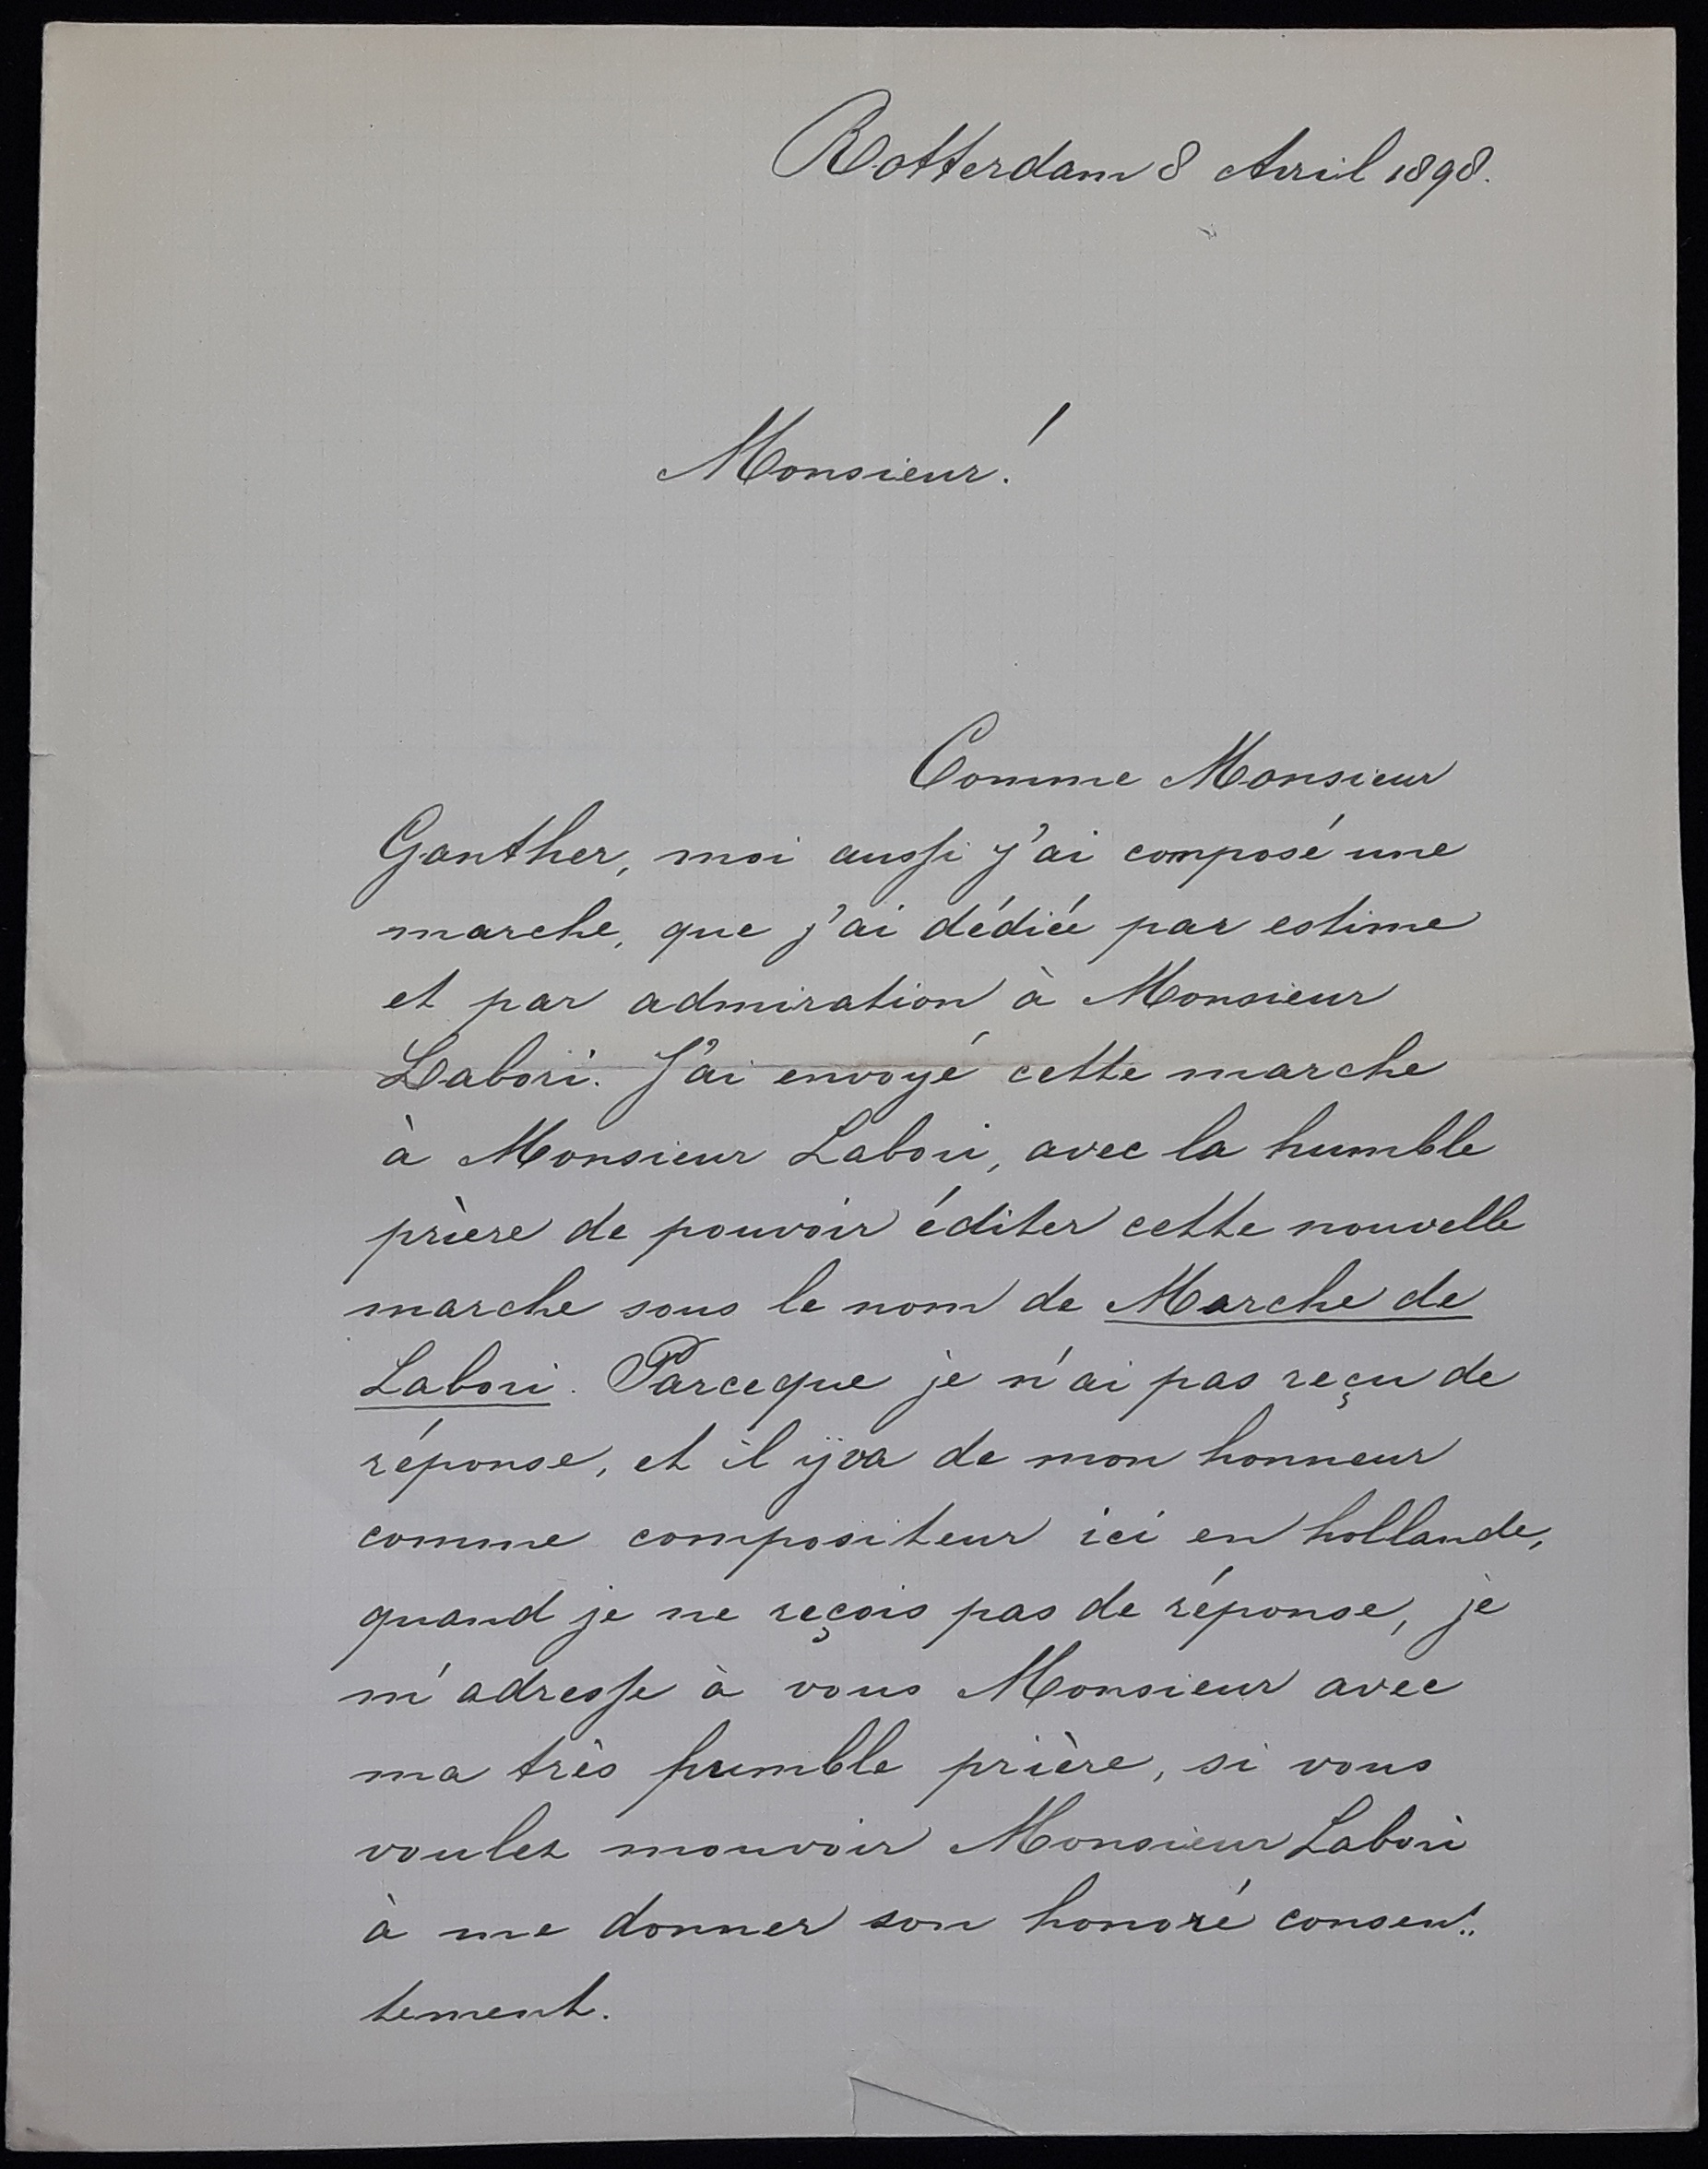 Rotterdam 8 Avril 1898.
Monsieur!
Comme Monsieur
Ganther, moi aussi j'ai composé une
marche, que j'ai dédiée par estime
et par admiration à Monsieur
Labori. J'ai envoyé cette marche
à Monsieur Labori, avec la humble
prière de pouvoir éditer cette nouvelle
marche sous le nom de Marche de
Labori. Parceque je n'ai pas reçu de
réponse, et il ÿ va de mon honneur
comme compositeur ici en hollande,
quand je ne reçois pas de réponse, je
m'adresse à vous Monsieur avec
ma très humble prière, si vous
voulez mouvoir Monsieur Labori
à me donner son honoré consen-
tement.